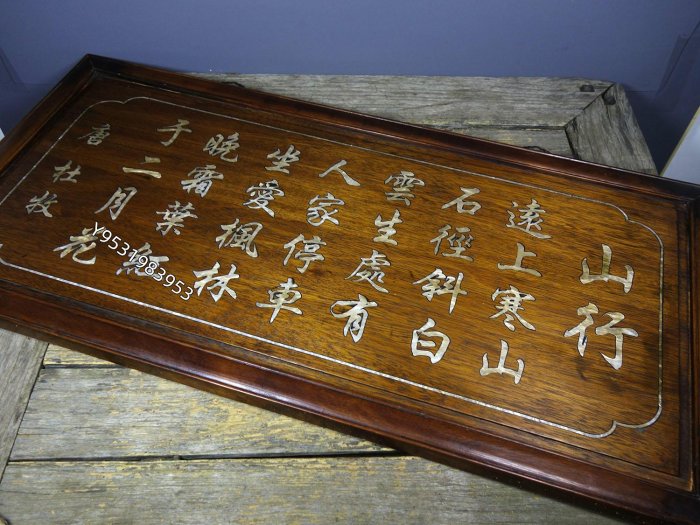 山行
遠上寒山
石徑斜白
雲生處有
人家停車
坐愛楓林
晚霜葉紅
于二月花
唐杜牧
Y9531983953